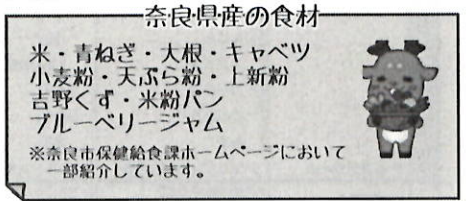 奈良県産の食材
米・青ねぎ・大根・キャベツ
小麦粉・天ぷら粉・上新粉
吉野くず・米粉パン
ブルーベリージャム
※奈良市保健給食課ホームページにおいて
一部紹介しています。